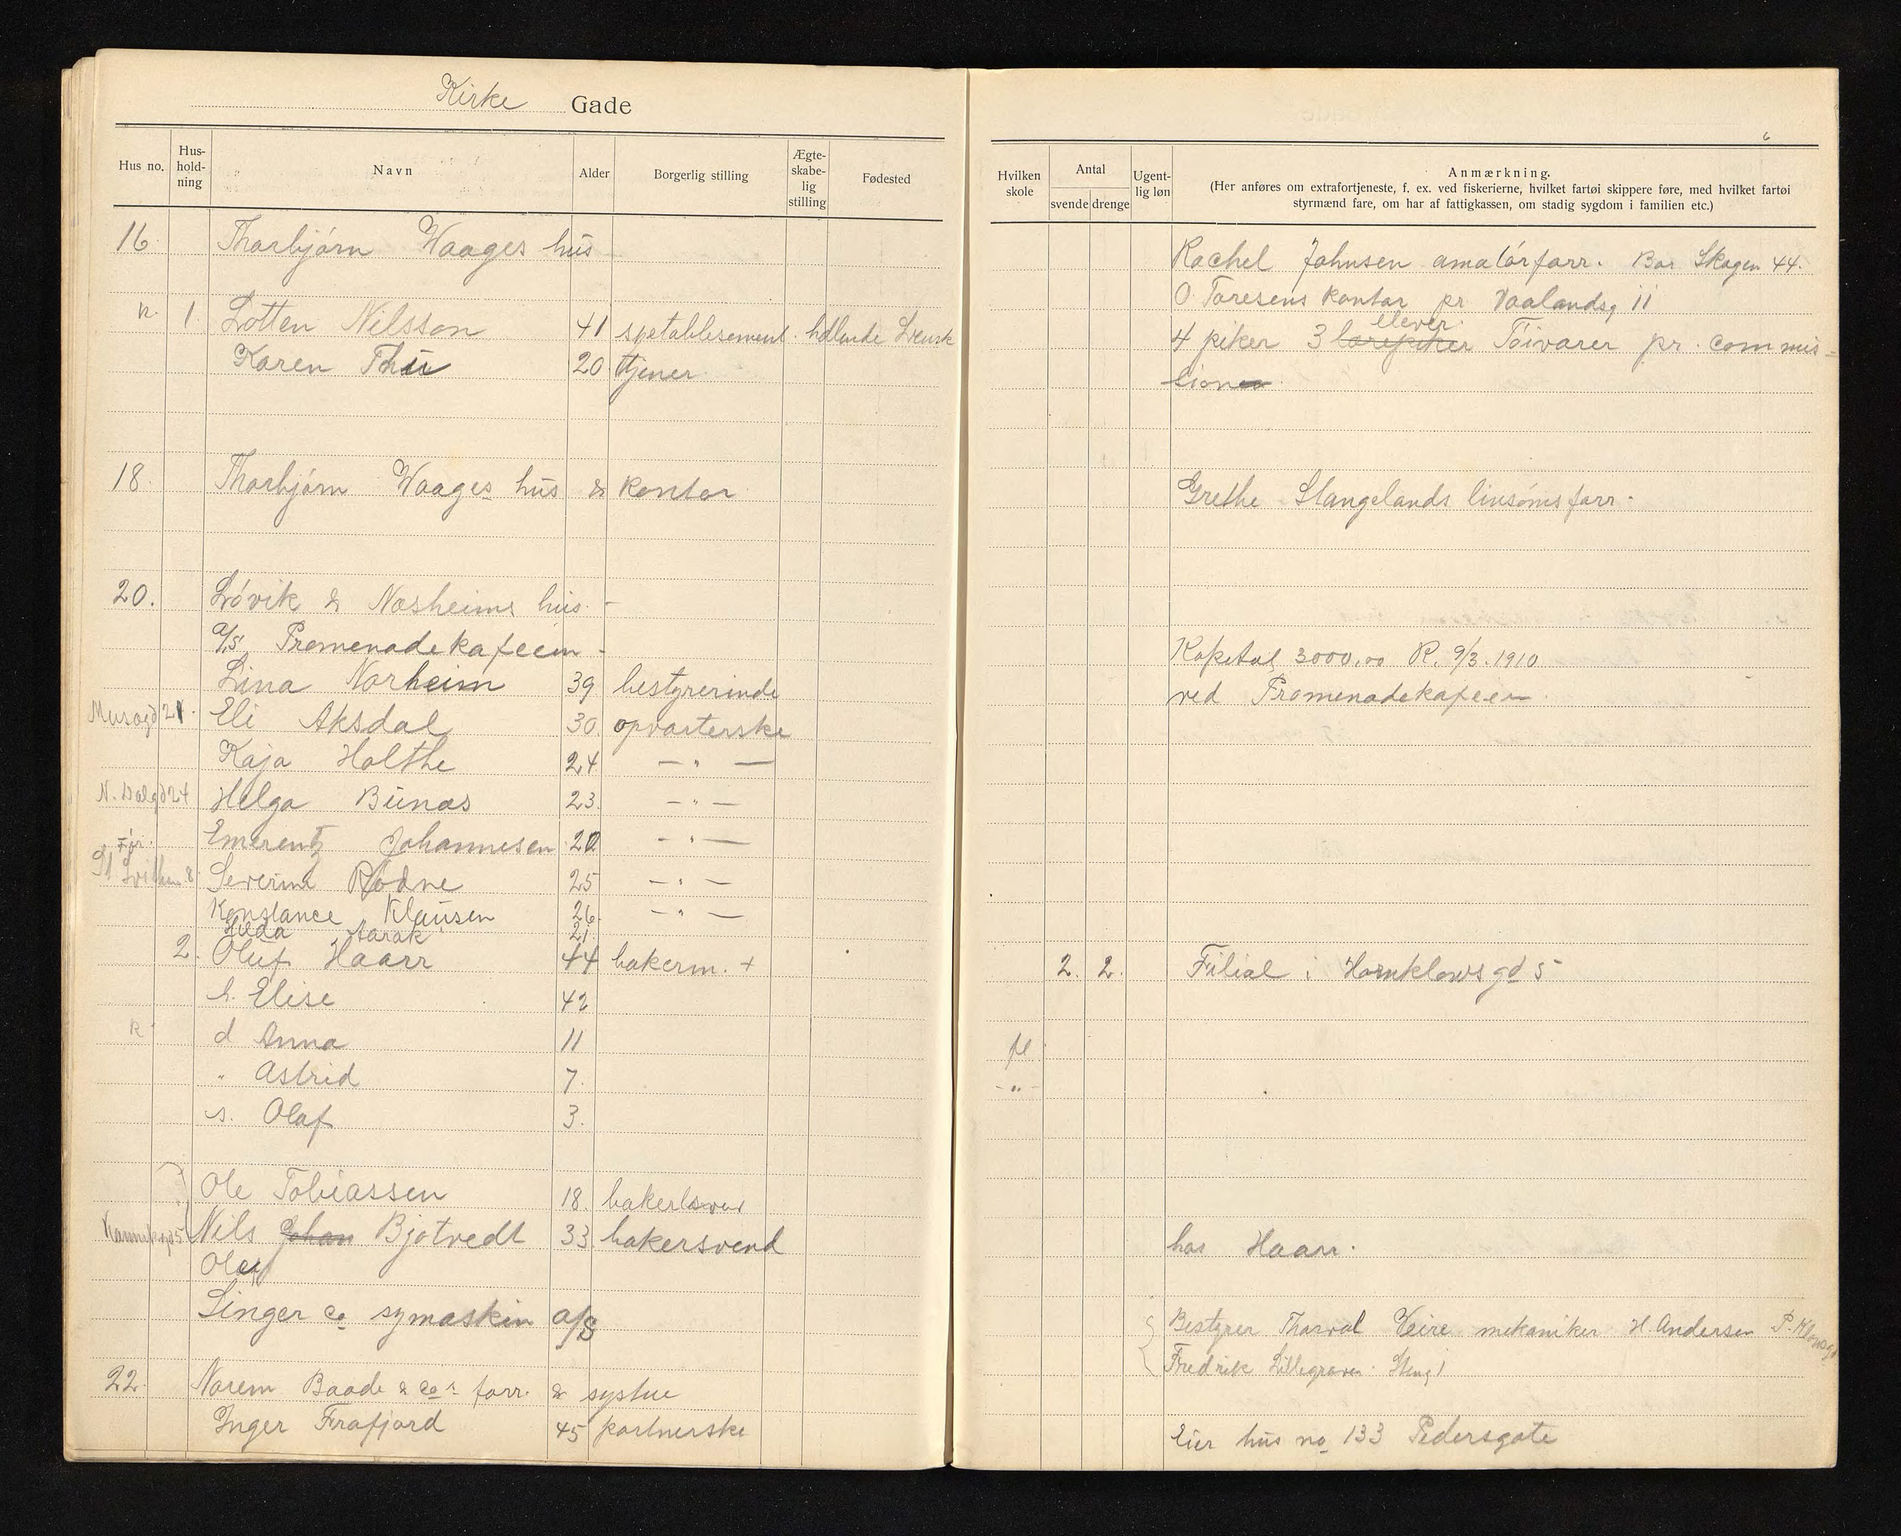 Kirke Gade
Hus no. Hus-holdning Navn Alder Borgerlig stilling Ægte-skabe-lig stilling Fødested
Hvilken skole Antal svende drenge Ugent-lig løn Anmærkning.
(Her anføres om extrafortjeneste, f. ex. ved fiskerierne, hvilket fartøi skippere føre, med hvilket fartøi
styrmænd fare, om har af fattigkassen, om stadig sygdom i familien etc.)
6
16. Thorbjørn Waages hus
Rachel Johnsen amatørforr. Bor Skagen 44.
O Toresens kontor pr Vaalandsg 11
k. 1. Lotten Nilsson 41 spetablisement hdlende Svensk
4 piker 3 lærepiker elever Töivarer pr. commis-
Karen Thu 20 tjener
sion
18. Thorbjørn Waages hus & kontor
Grethe Stangelands linsømsforr.
20. Løvik & Næsheims hus.
a/s. Promenadekafeen
Kapital 3000,00 R. 9/3. 1910
Lina Norheim 39 bestyrerinde
ved Promenadekafeen
Musegd 21. Eli Aksdal 30. opvarterske
Kaja Holthe 24 — " —
N. Dalgd 24 Helga Bunæs 23. — " —
Fjr. Emerentz Johannesen 20 — " —
St Svithun 8 Severine Rødne 25 — " —
Konstance Klausen 26. — " —
Hilda Aarak 21.
2. Oluf Haarr 44 bakerm. +
2. 2. Filial i Hornklowsgd 5
h. Elise 42
k d Anna 11
fl.
" Astrid 7.
- " -
s. Olaf 3.
Ole Tobiassen 18. bakerlær
Kannikgd 5 Nils Johan Bjotvedt 33 bakersvend
hos Haarr.
Olaf
Singer Co symaskin a/s
Bestyrer Thorval Veire mekaniker H. Andersen P. Klowsgd
Fredrik Lillegraven
22. Norem Baade & Co s forr. & systue
Inger Frafjord 45 partnerske
Eier hus no 133 Pedersgate